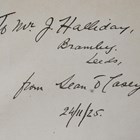 To Mr J. Halliday,
Bramley.
Leeds,
from Sean O Casey
24/11/25.